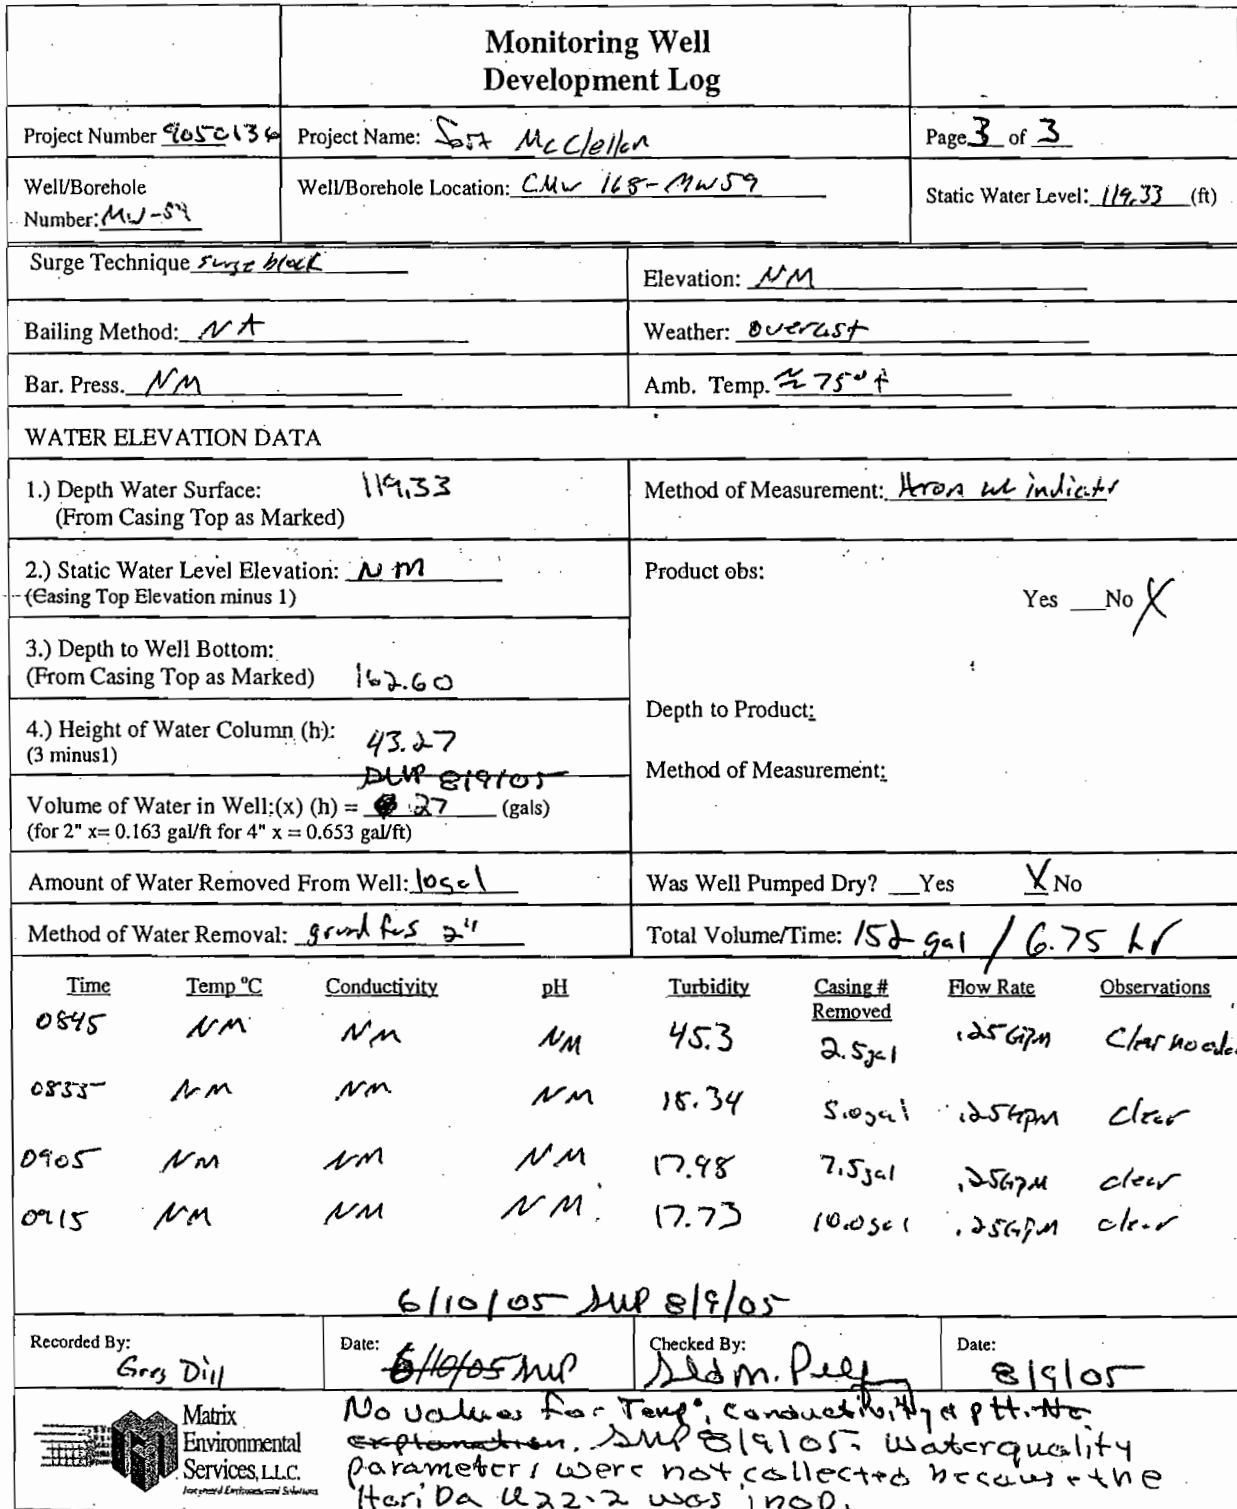 Monitoring Well
Development Log
Project Number 905C136
Project Name: Fort McClellan
Page 3 of 3
Well/Borehole
Number: MW-59
Well/Borehole Location: CMW 168-MW59
Static Water Level: 119.33 (ft)
Surge Technique surge block
Elevation: NM
Bailing Method: NA
Weather: overcast
Bar. Press. NM
Amb. Temp. ≈ 75° f
WATER ELEVATION DATA
1.) Depth Water Surface: 119.33
(From Casing Top as Marked)
Method of Measurement: Heron wl indicator
2.) Static Water Level Elevation: NM
(Casing Top Elevation minus 1)
Product obs:
Yes No X
3.) Depth to Well Bottom:
(From Casing Top as Marked) 162.60
4.) Height of Water Column (h): 43.27
(3 minus1)
8/9/05
Depth to Product:
Method of Measurement:
Volume of Water in Well:(x) (h) = 27 (gals)
(for 2" x= 0.163 gal/ft for 4" x = 0.653 gal/ft)
Amount of Water Removed From Well: 10gal
Was Well Pumped Dry? Yes X No
Method of Water Removal: grundfos 2"
Total Volume/Time: 152 gal / 6.75 hr
Time Temp °C Conductivity pH Turbidity Casing # Removed Flow Rate Observations
0845 NM NM NM 45.3 2.5gal .25GPM Clear
0855 NM NM NM 18.34 5.0gal .25GPM clear
0905 NM NM NM 17.98 7.5gal .25GPM clear
0915 NM NM NM 17.73 10.0gal .25GPM clear
6/10/05 SMP 8/9/05
Recorded By: Greg Dill
Date: 6/10/05 SMP
Checked By:
Date: 8/9/05
Matrix
Environmental
Services, L.L.C.
Integrated Environmental Solutions
No values for Temp°, conductivity & pH. No
explanation. SMP 8/9/05. Waterquality
parameters were not collected because the
Horiba U22-2 was inop.